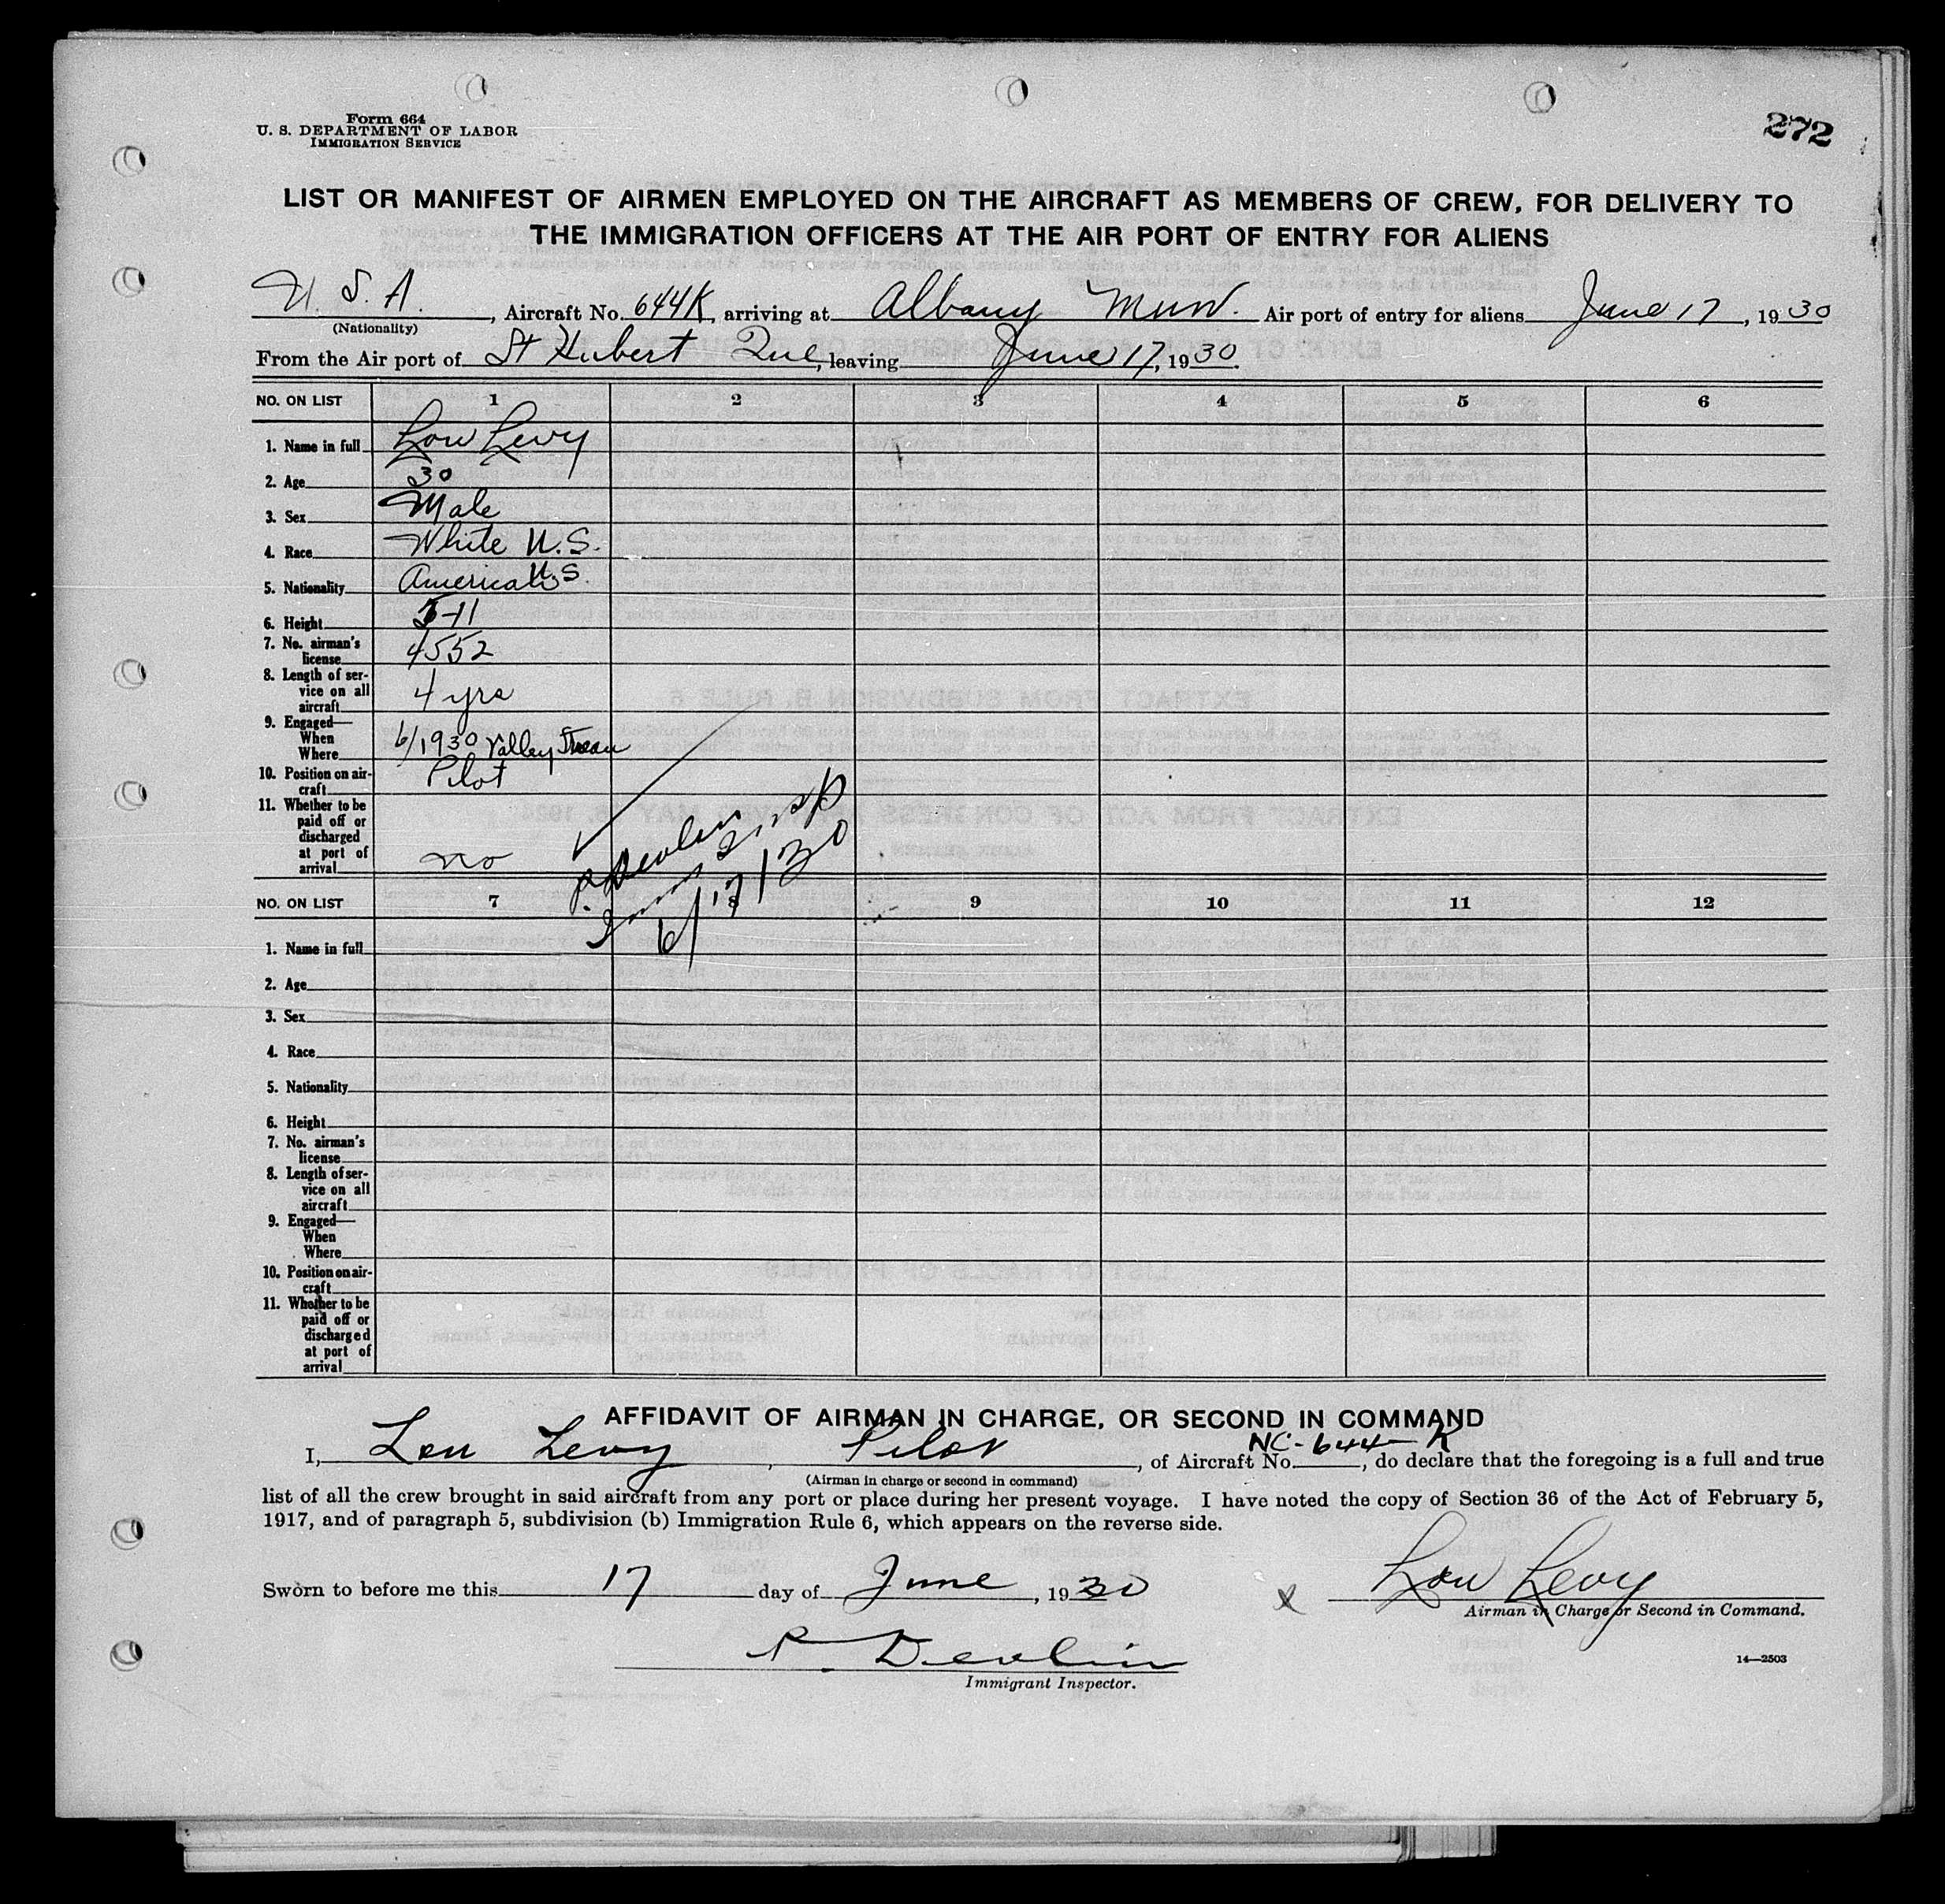 272
Form 664
U. S. DEPARTMENT OF LABOR
IMMIGRATION SERVICE
LIST OR MANIFEST OF AIRMEN EMPLOYED ON THE AIRCRAFT AS MEMBERS OF CREW, FOR DELIVERY TO
THE IMMIGRATION OFFICERS AT THE AIR PORT OF ENTRY FOR ALIENS
U. S. A., Aircraft No. 644K, arriving at Albany Mun. Air port of entry for aliens June 17, 1930
(Nationality)
From the Air port of St Hubert Que, leaving June 17, 1930.
NO. ON LIST 1 2 3 4 5 6
1. Name in full Lou Levy
2. Age 30
3. Sex Male
4. Race White U.S.
5. Nationality American U.S.
6. Height 5-11
7. No. airman's
license 4552
8. Length of ser-
vice on all
aircraft 4 yrs
9. Engaged—
When
Where 6/1930 Valley Stream
10. Position on air-
craft Pilot
11. Whether to be
paid off or
discharged
at port of
arrival no
P. Devlin
Imm Insp
6/17/30
NO. ON LIST 7 8 9 10 11 12
1. Name in full
2. Age
3. Sex
4. Race
5. Nationality
6. Height
7. No. airman's
license
8. Length of ser-
vice on all
aircraft
9. Engaged—
When
Where
10. Position on air-
craft
11. Whether to be
paid off or
discharged
at port of
arrival
AFFIDAVIT OF AIRMAN IN CHARGE, OR SECOND IN COMMAND
I, Lou Levy, Pilot, of Aircraft No. NC-644-K, do declare that the foregoing is a full and true
(Airman in charge or second in command)
list of all the crew brought in said aircraft from any port or place during her present voyage. I have noted the copy of Section 36 of the Act of February 5,
1917, and of paragraph 5, subdivision (b) Immigration Rule 6, which appears on the reverse side.
Sworn to before me this 17 day of June, 1930
x Lou Levy
Airman in Charge or Second in Command.
P. Devlin
Immigrant Inspector.
14—2503